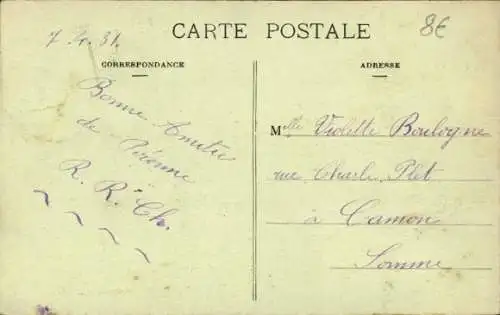 CARTE POSTALE
8€
7. 4. 31.
CORRESPONDANCE
Bonne Amitié
de Péronne
R. R. Ch.
ADRESSE
Melle Violette Boulogne
rue Charle Plet
à Camon
Somme